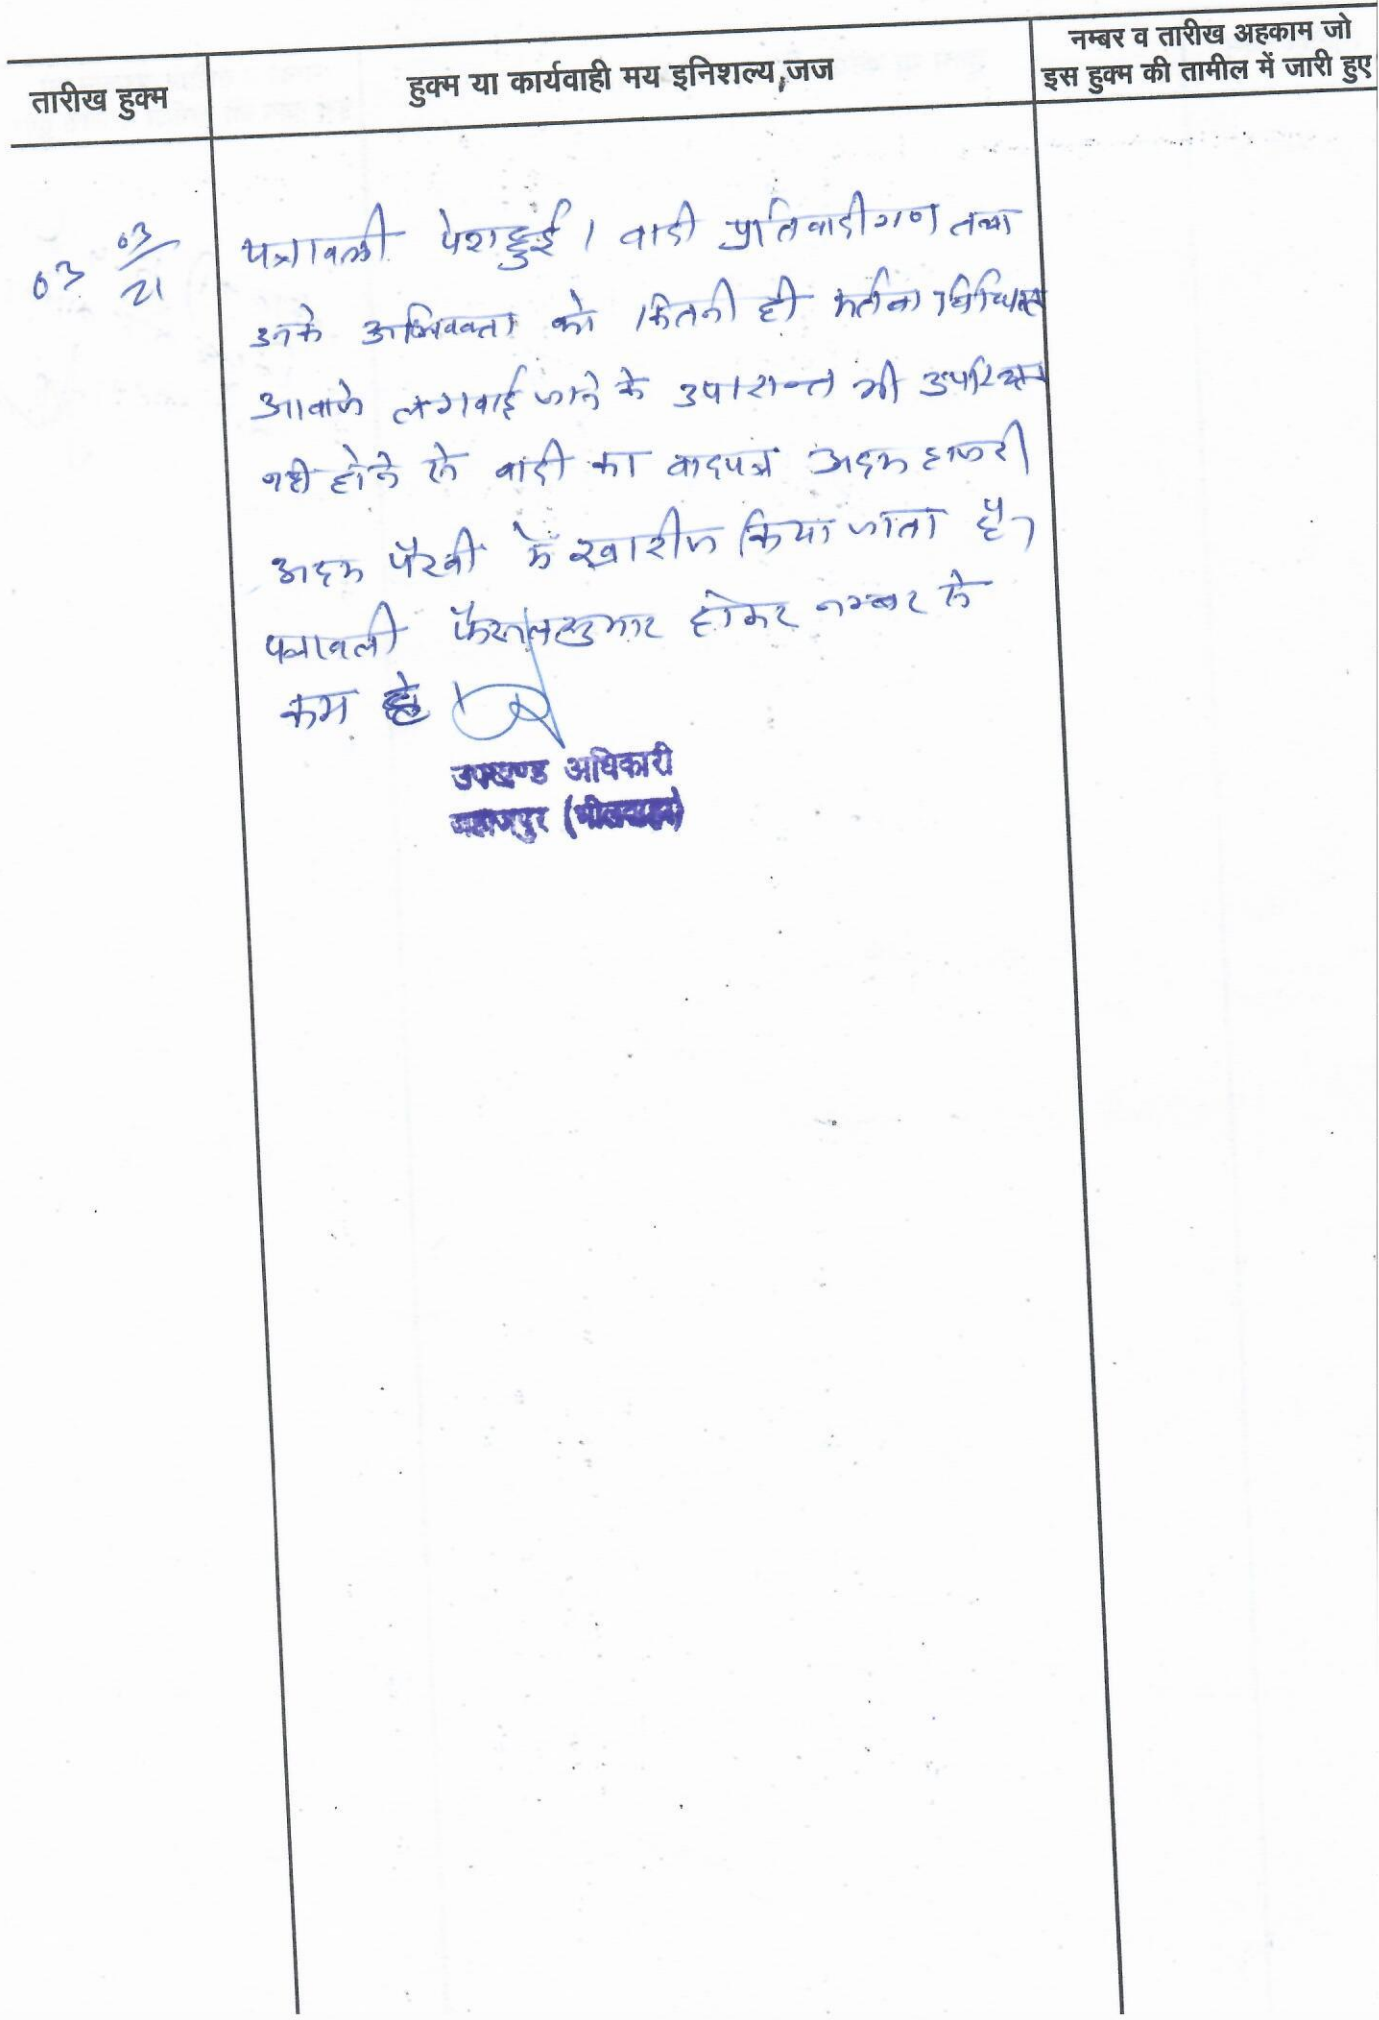 तारीख हुक्म
हुक्म या कार्यवाही मय इनिशल्य,जज
नम्बर व तारीख अहकाम जो
इस हुक्म की तामील में जारी हुए
03 03/21
पत्रावली पेश हुई। वादी प्रतिवादीगण तथा
उनके अभिवक्ता को कितनी ही मर्तबा
आवाजे लगवाई जाने के उपरान्त भी उपस्थित
नही होने से वादी का वादपत्र अदम हाजरी
अदम पैरवी मे खारीज किया जाता है।
पत्रावली फैसलशुमार होकर नम्बर से
कम हो
उपखण्ड अधिकारी
जहाजपुर (भीलवाडा)